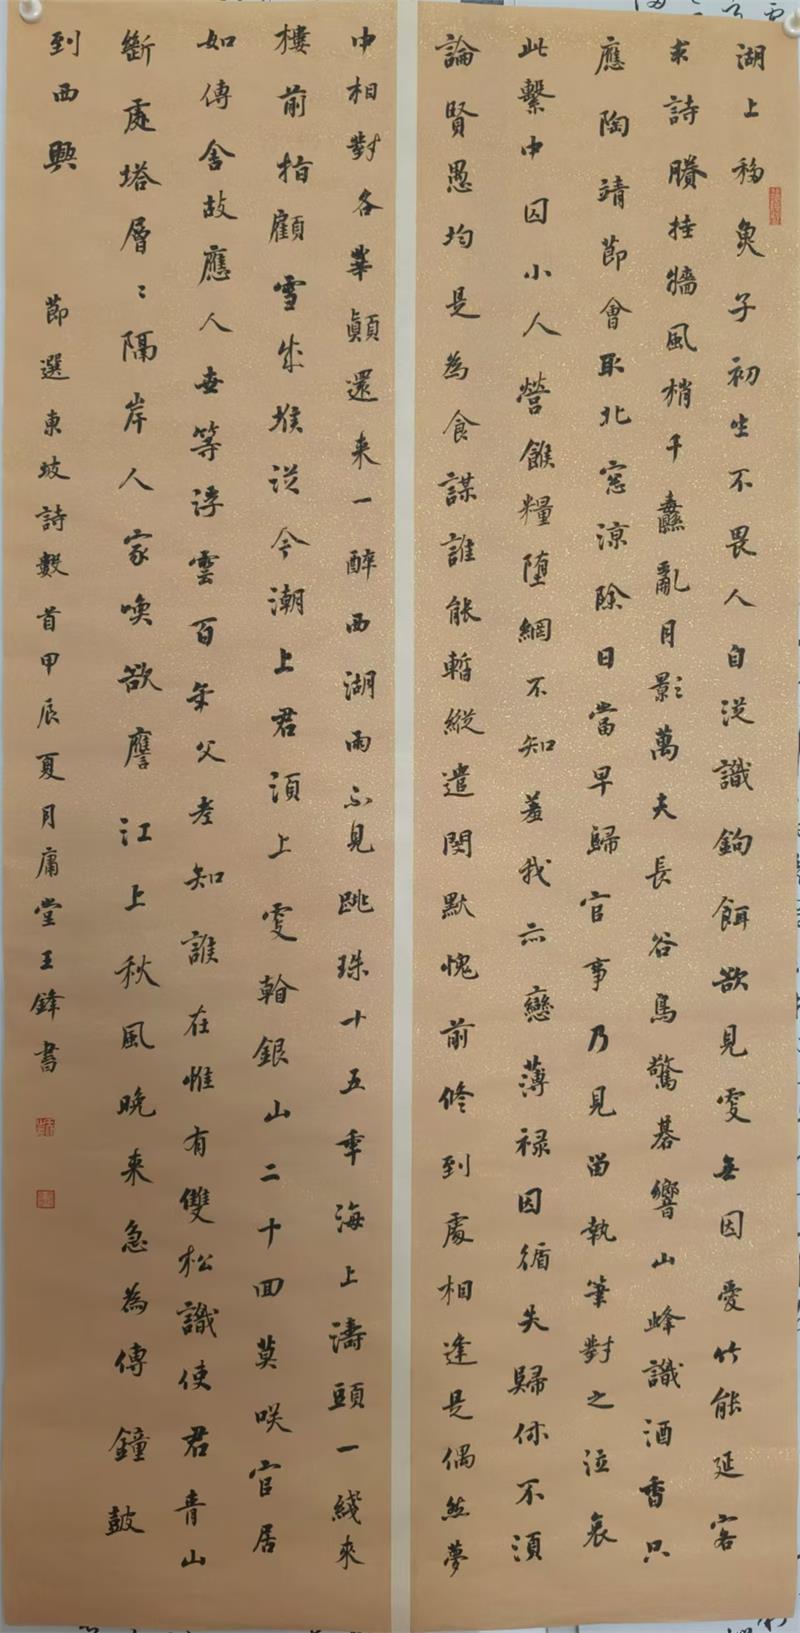 湖上移魚子初生不畏人自從識鉤餌欲見更無因愛竹能延客
求詩賸挂牆風梢千纛亂月影萬夫長谷鳥驚棊響山蜂識酒香只
應陶靖節會取北窓涼除日當早歸官事乃見留執筆對之泣哀
此繫中囚小人營餱糧墮網不知羞我亦戀薄祿因循失歸休不須
論賢愚均是為食謀誰能暫縱遣閔默愧前修到處相逢是偶然夢
中相對各華顛還來一醉西湖雨不見跳珠十五年海上濤頭一綫來
樓前指顧雪成堆從今潮上君須上更看銀山二十回莫咲官居
如傳舍故應人世等浮雲百年父老知誰在惟有雙松識使君青山
斷處塔層〻隔岸人家喚欲譍江上秋風晚來急為傳鐘鼓
到西興 節選東坡詩數首甲辰夏月庸堂王鋒書